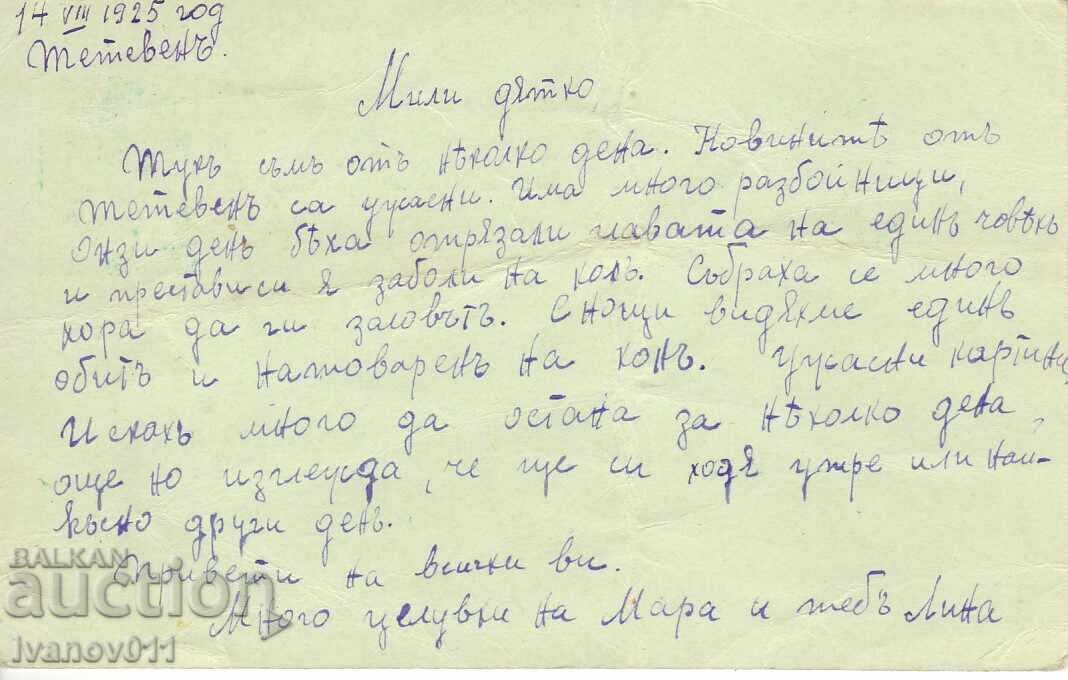 14 VIII 1925 год
Тетевенъ.
Мили дѣтко,
Тукъ съмъ отъ нѣколко дена. Новинитѣ отъ
Тетевенъ са ужасни. Има много разбойници,
Онзи день бѣха отрязали главата на единъ човѣкъ
и престави си я заболи на колъ. Събраха се много
хора да ги заловътъ. Снощи видяхме единъ
обитъ и натоваренъ на конъ. Ужасни картини,
Искахъ много да остана за нѣколко дена
още но изглежда, че ще си ходя утре или най-
късно други день.
Привети на всички ви.
Много целувки на Мара и тебъ Лина
BALKAN
auction
ivanov011